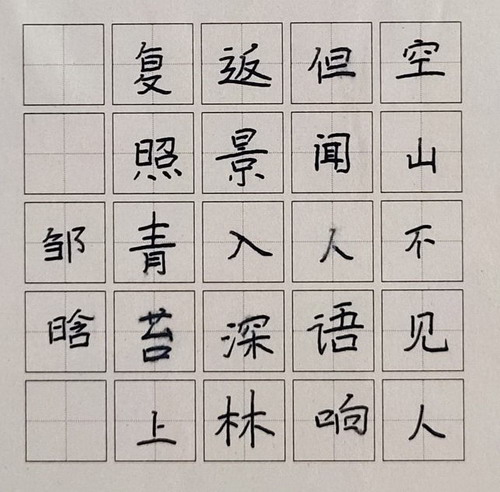 空山不见人
但闻人语响
返景入深林
复照青苔上
邹晗